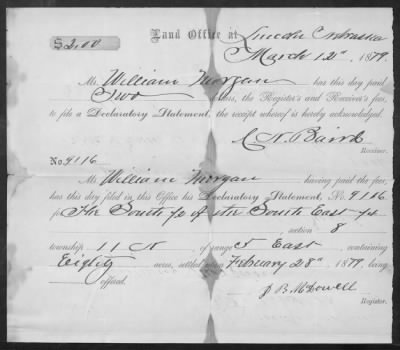 $2.00
Land Office at Lincoln Nebraska
March 12th, 1879.
Mr. William Morgan has this day paid
Two dollars, the Register's and Receiver's fees,
to file a Declaratory Statement, the receipt whereof is hereby acknowledged.
Baird
Receiver.
No. 9116
Mr. William Morgan having paid the fees,
has this day filed in this Office his Declaratory Statement, No. 9116
for The South ½ of the South East ¼
section 8
township 11 N of range 5 East containing
Eighty acres, settled upon February 28th, 1879, being
offered.
J. B. McDowell
Register.